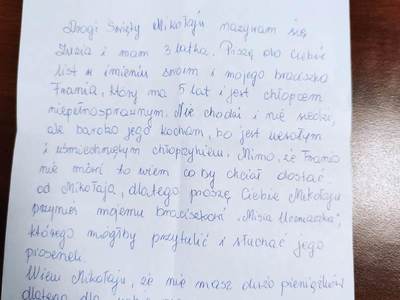 Drogi Święty Mikołaju nazywam się
Zuzia i mam 3 latka. Piszę do Ciebie
list w imieniu swoim i mojego braciszka
Frania, który ma 5 lat i jest chłopcem
niepełnosprawnym. Nie chodzi i nie siedzi,
ale bardzo jego kocham, bo jest wesołym
i uśmiechniętym chłopczykiem. Mimo, że Franio
nie mówi to wiem co by chciał dostać
od Mikołaja, dlatego proszę Ciebie Mikołaju
przynieś mojemu braciszkowi "Misia Uczniaczka",
którego mógłby przytulić i słuchać jego
piosenek.
Wiem Mikołaju, że nie masz dużo pieniążków
dlatego dla